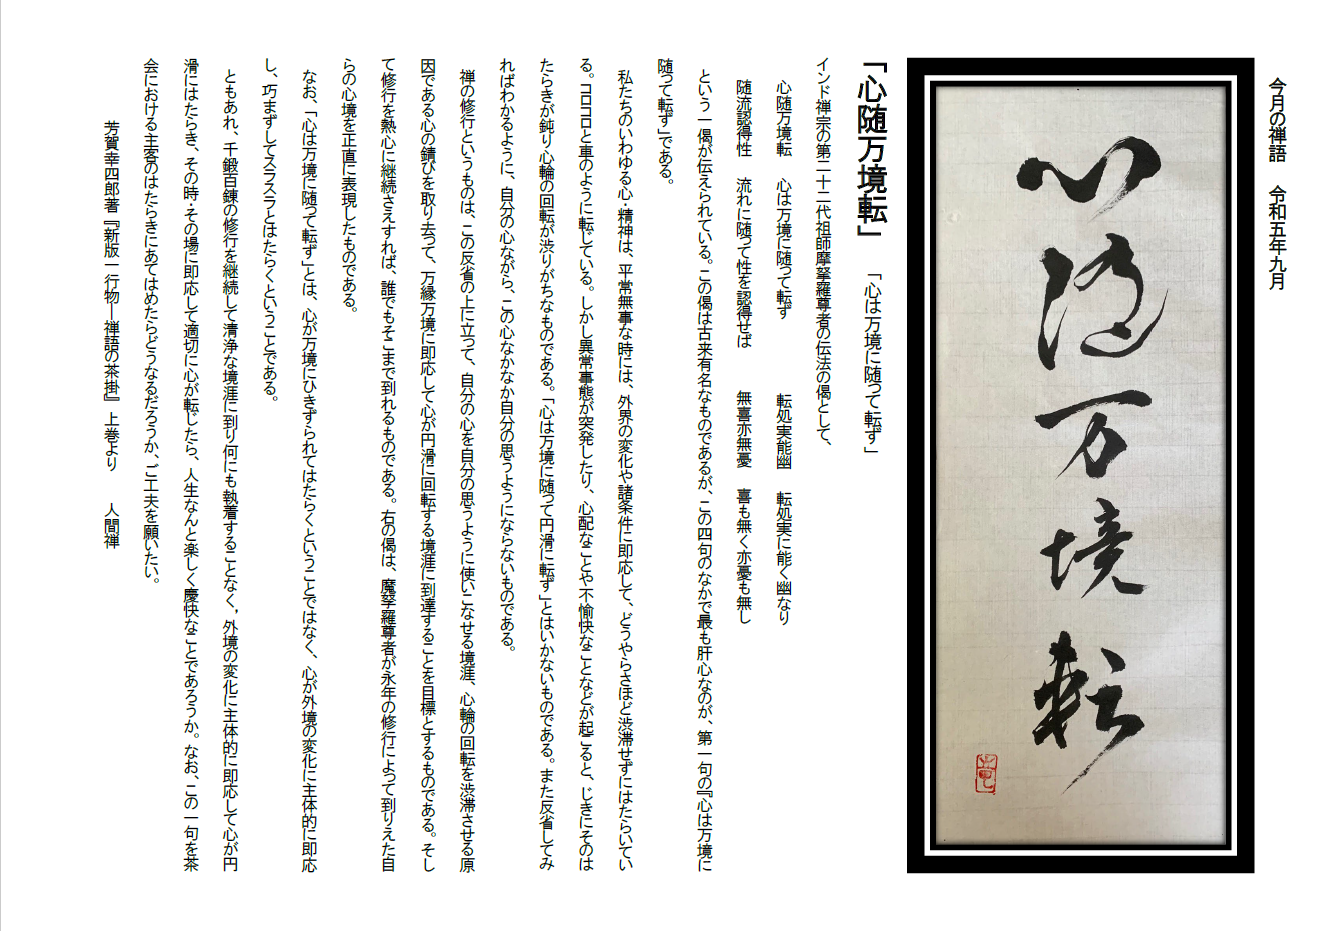 今月の禅語　令和五年九月
心随万境転
「心随万境転」　「心は万境に随って転ず」
インド禅宗の第二十二代祖師摩拏羅尊者の伝法の偈として、
心随万境転　心は万境に随って転ず　転処実能幽　転処実に能く幽なり
随流認得性　流れに随って性を認得せば　無喜亦無憂　喜も無く亦憂も無し
という一偈が伝えられている。この偈は古来有名なものであるが、この四句のなかで最も肝心なのが、第一句の『心は万境に
随って転ず」である。
私たちのいわゆる心・精神は、平常無事な時には、外界の変化や諸条件に即応して、どうやらさほど渋滞せずにはたらいてい
る。コロコロと車のように転じている。しかし異常事態が突発したり、心配なことや不愉快なことなどが起こると、じきにそのは
たらきが鈍り心輪の回転が渋りがちなものである。「心は万境に随って円滑に転ず」とはいかないものである。また反省してみ
ればわかるように、自分の心ながら、この心なかなか自分の思うようにならないものである。
禅の修行というものは、この反省の上に立って、自分の心を自分の思うように使いこなせる境涯、心輪の回転を渋滞させる原
因である心の錆びを取り去って、万縁万境に即応して心が円滑に回転する境涯に到達することを目標とするものである。そし
て修行を熱心に継続さえすれば、誰でもそこまで到れるものである。右の偈は、魔拏羅尊者が永年の修行によって到りえた自
らの心境を正直に表現したものである。
なお、「心は万境に随って転ず」とは、心が万境にひきずられてはたらくということではなく、心が外境の変化に主体的に即応
し、巧まずしてスラスラとはたらくということである。
ともあれ、千鍛百錬の修行を継続して清浄な境涯に到り何にも執着することなく，外境の変化に主体的に即応して心が円
滑にはたらき、その時・その場に即応して適切に心が転じたら、人生なんと楽しく慶快なことであろうか。なお、この一句を茶
会における主客のはたらきにあてはめたらどうなるだろうか、ご工夫を願いたい。
芳賀幸四郎著『新版一行物―禅語の茶掛』上巻より　人間禅